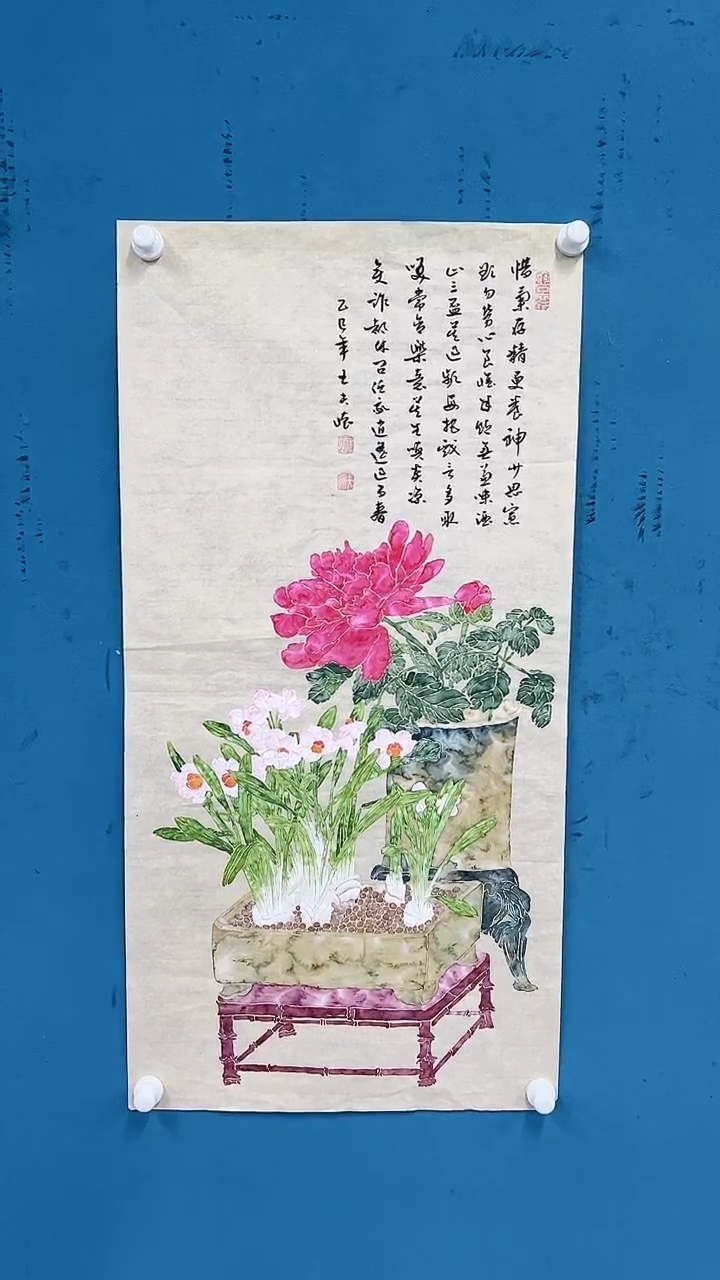 惜氣存精更養神少思寡
欲勿勞心食惟半飽無兼味酒
止三盃莫过频每把戏言多取
笑常含樂意莫生嗔炎凉
变诈都休问任我逍遥过百春
乙巳年